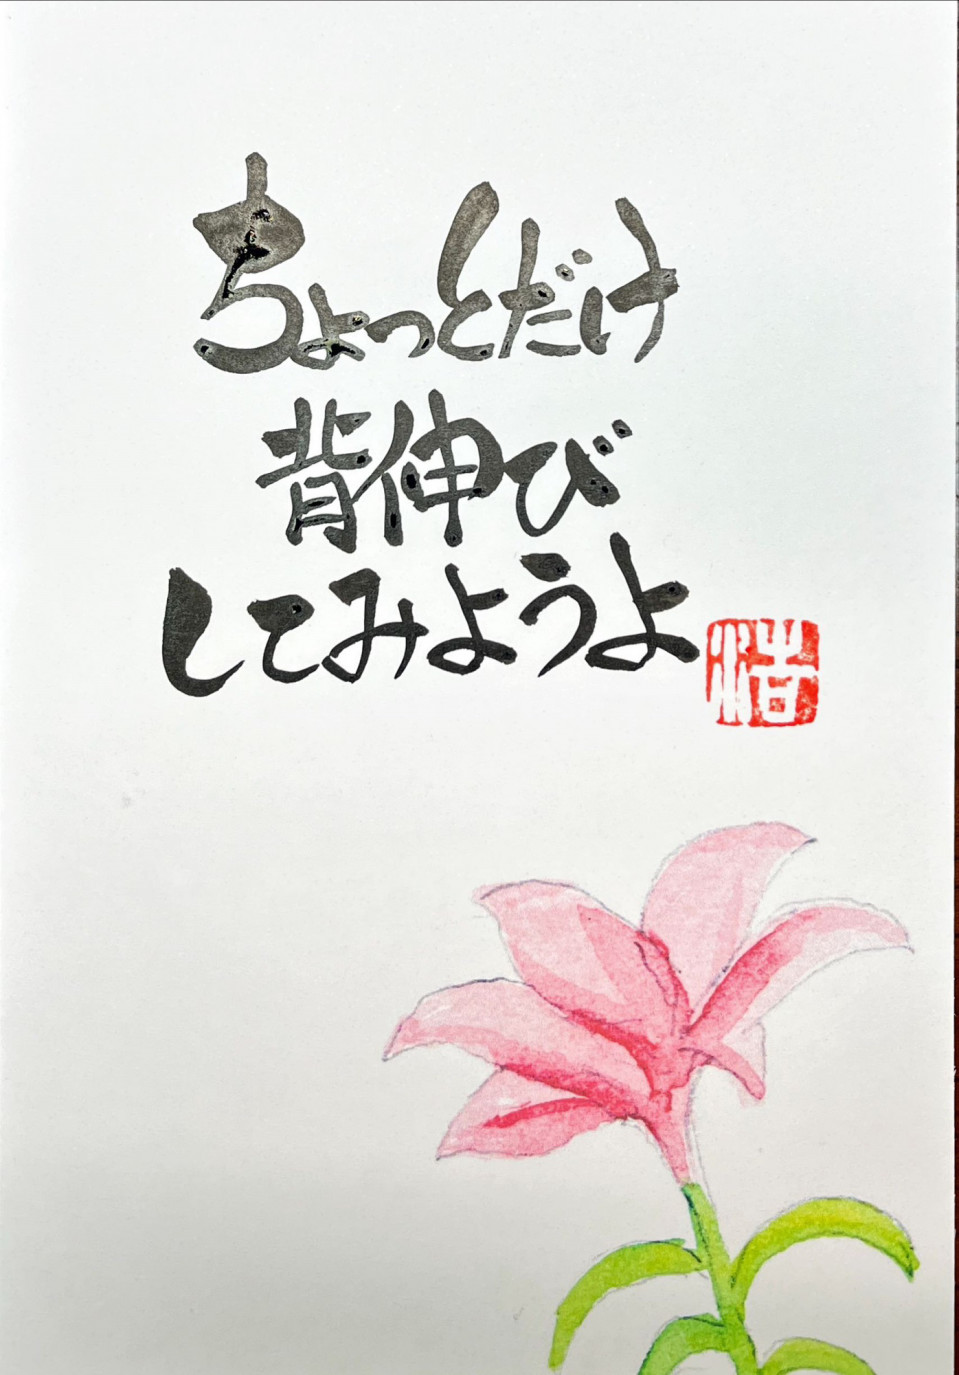 ちょっとだけ
背伸び
してみようよ
浩